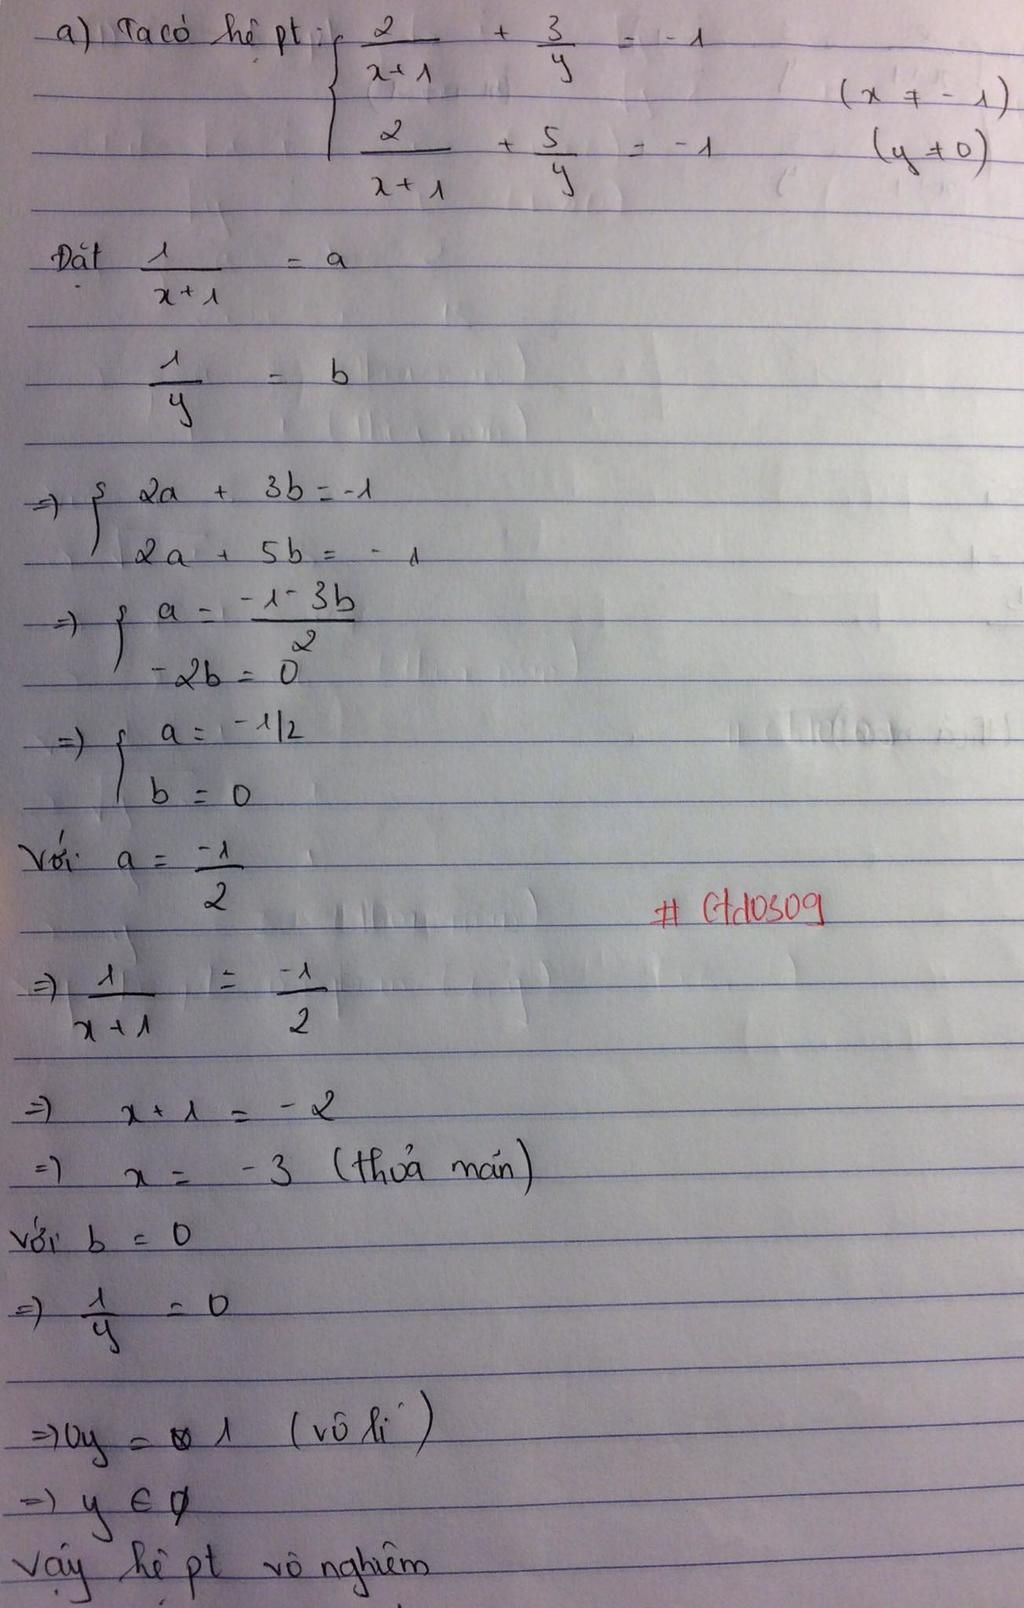 a) Ta có hệ pt: { 2/(x+1) + 3/y = -1 (x ≠ -1)
2/(x+1) + 5/y = -1 (y ≠ 0)
Đặt 1/(x+1) = a
1/y = b
=> { 2a + 3b = -1
2a + 5b = -1
=> { a = (-1-3b)/2
-2b = 0
=> { a = -1/2
b = 0
Với a = -1/2
# Gtd0309
=> 1/(x+1) = -1/2
=> x+1 = -2
=> x = -3 (thoả mãn)
với b = 0
=> 1/y = 0
=> 0y = 1 (vô lí)
=> y ∈ ∅
Vậy hệ pt vô nghiệm